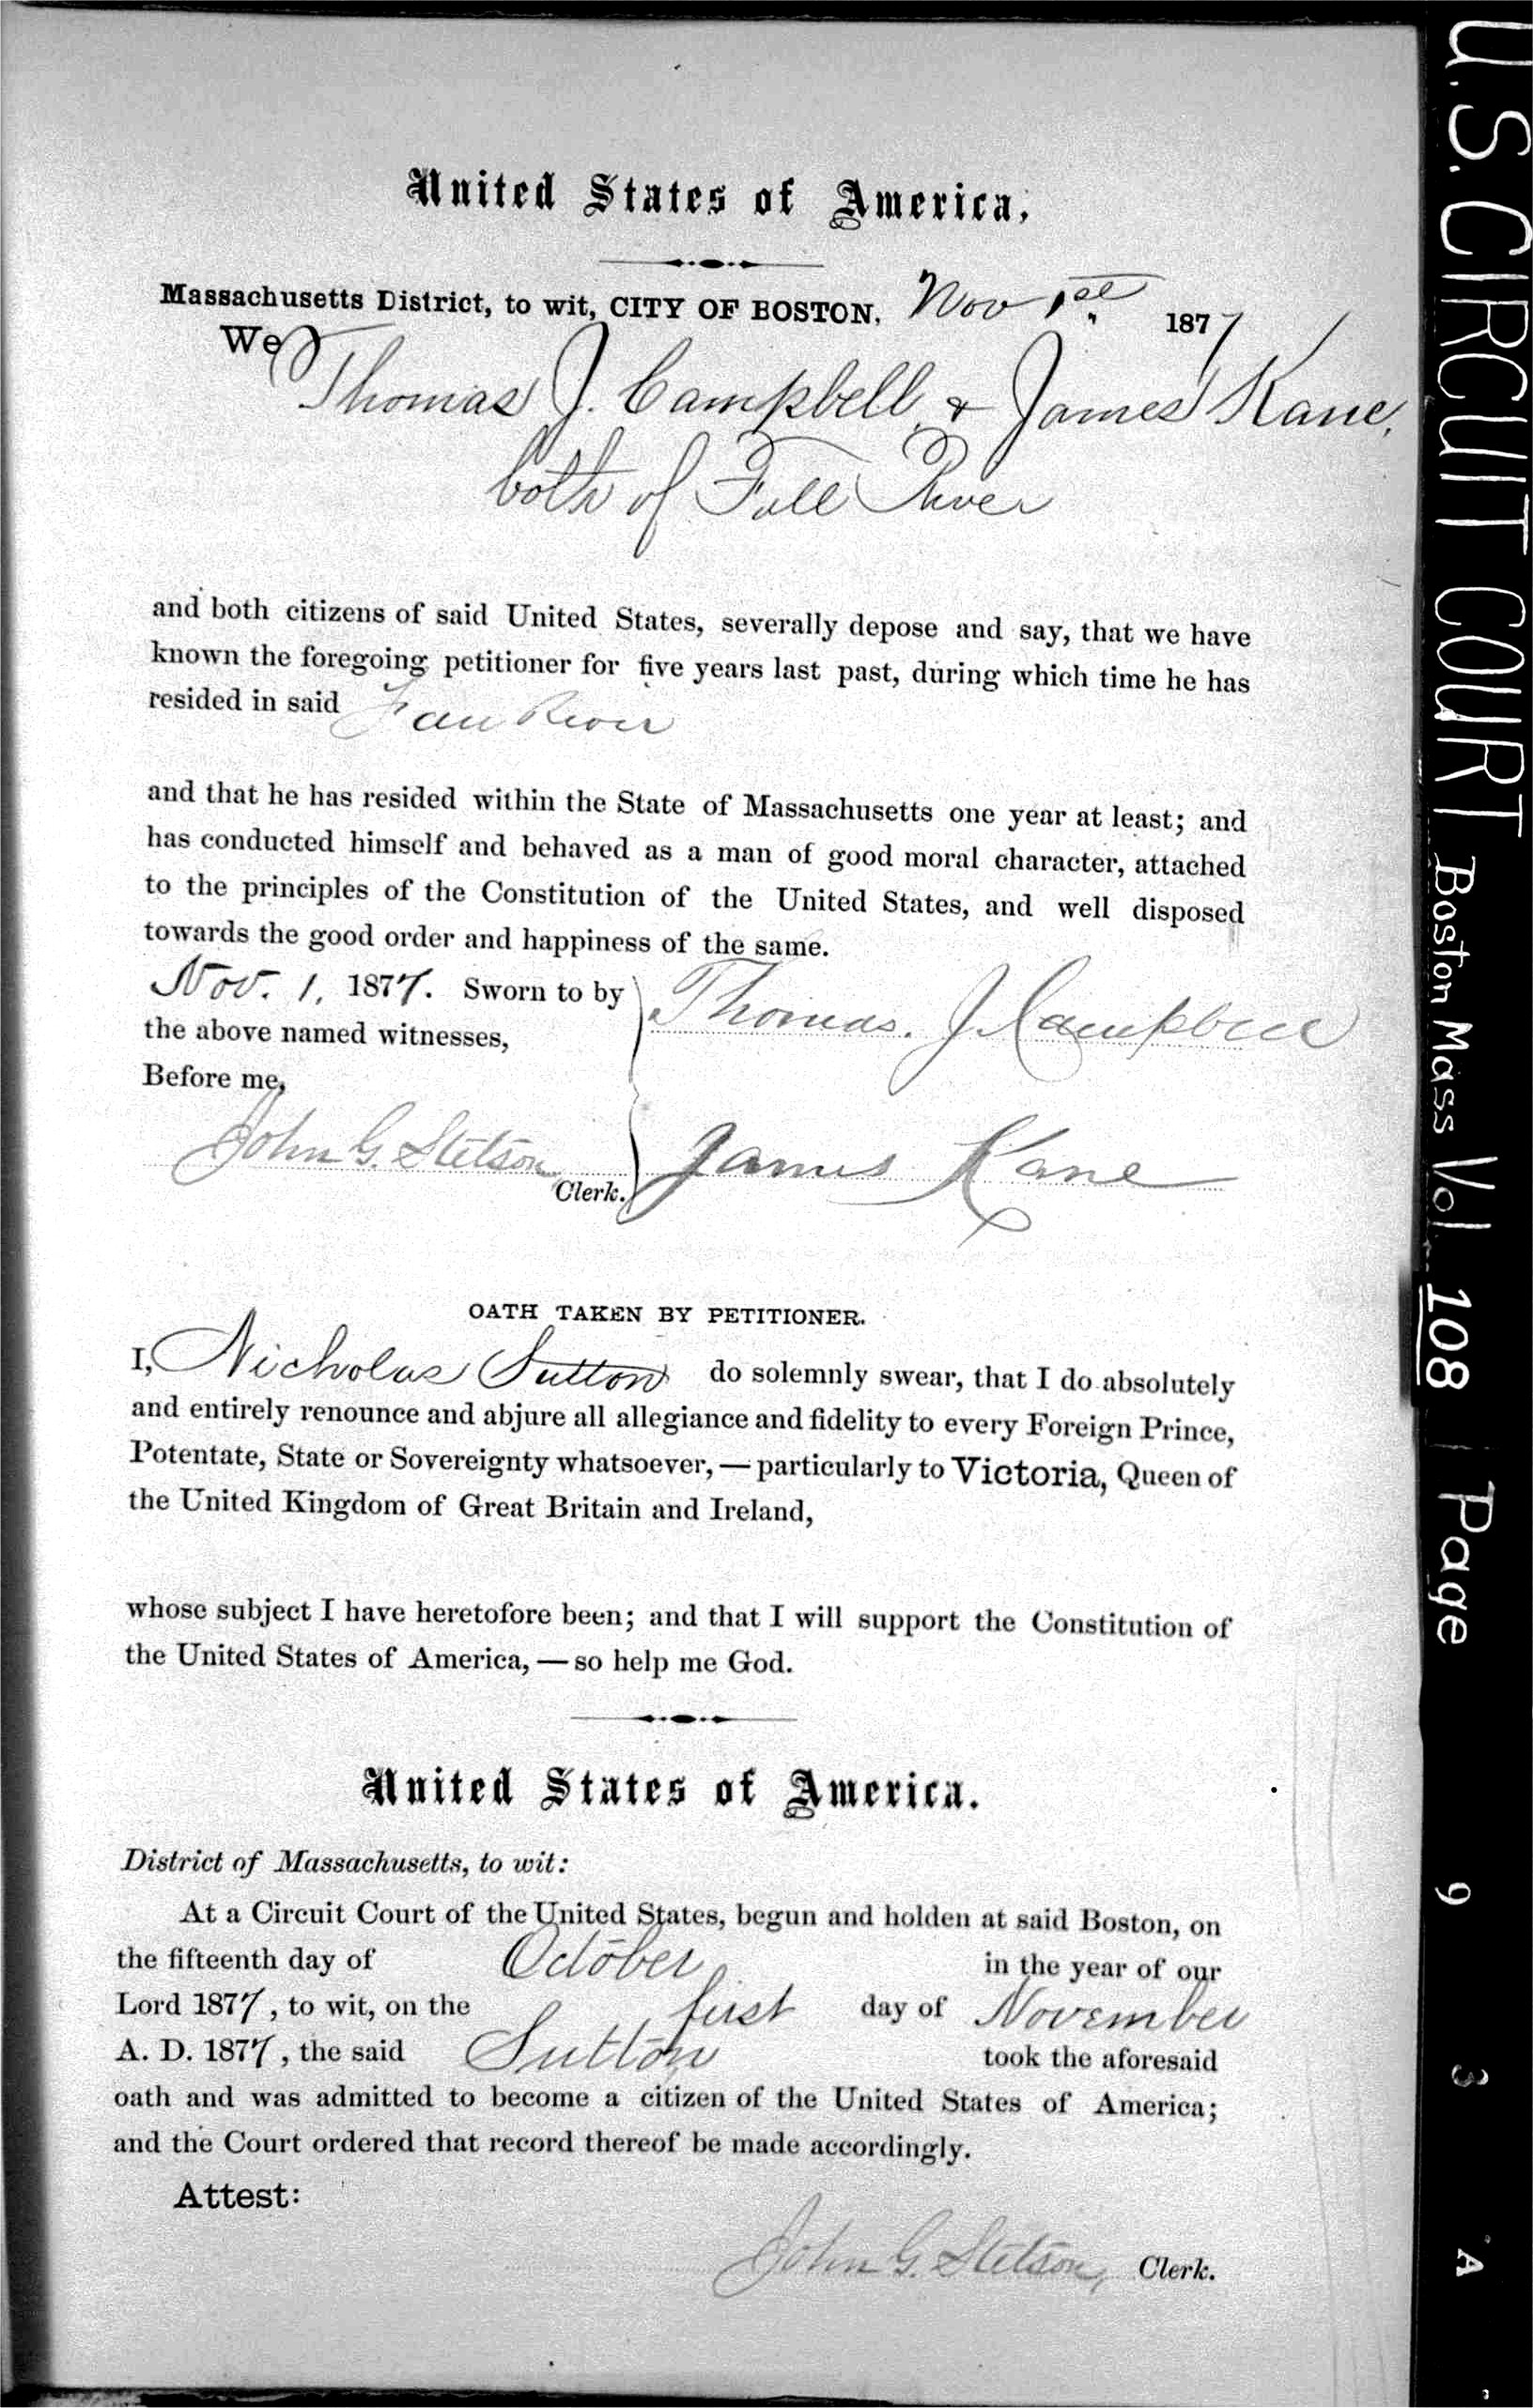 United States of America.
Massachusetts District, to wit, CITY OF BOSTON, Nov 1st 1877
We Thomas J. Campbell, & James Kane,
both of Fall River
and both citizens of said United States, severally depose and say, that we have
known the foregoing petitioner for five years last past, during which time he has
resided in said Fall River
and that he has resided within the State of Massachusetts one year at least; and
has conducted himself and behaved as a man of good moral character, attached
to the principles of the Constitution of the United States, and well disposed
towards the good order and happiness of the same.
Nov. 1, 1877. Sworn to by
the above named witnesses,
Before me,
John G. Stetson
Clerk.
Thomas. J. Campbell
James Kane
OATH TAKEN BY PETITIONER.
I, Nicholas Sutton do solemnly swear, that I do absolutely
and entirely renounce and abjure all allegiance and fidelity to every Foreign Prince,
Potentate, State or Sovereignty whatsoever, — particularly to Victoria, Queen of
the United Kingdom of Great Britain and Ireland,
whose subject I have heretofore been; and that I will support the Constitution of
the United States of America, — so help me God.
United States of America.
District of Massachusetts, to wit:
At a Circuit Court of the United States, begun and holden at said Boston, on
the fifteenth day of October in the year of our
Lord 1877, to wit, on the first day of November
A. D. 1877, the said Sutton took the aforesaid
oath and was admitted to become a citizen of the United States of America;
and the Court ordered that record thereof be made accordingly.
Attest:
John G. Stetson, Clerk.
U.S. CIRCUIT COURT Boston Mass Vol 108 Page 9 3 A